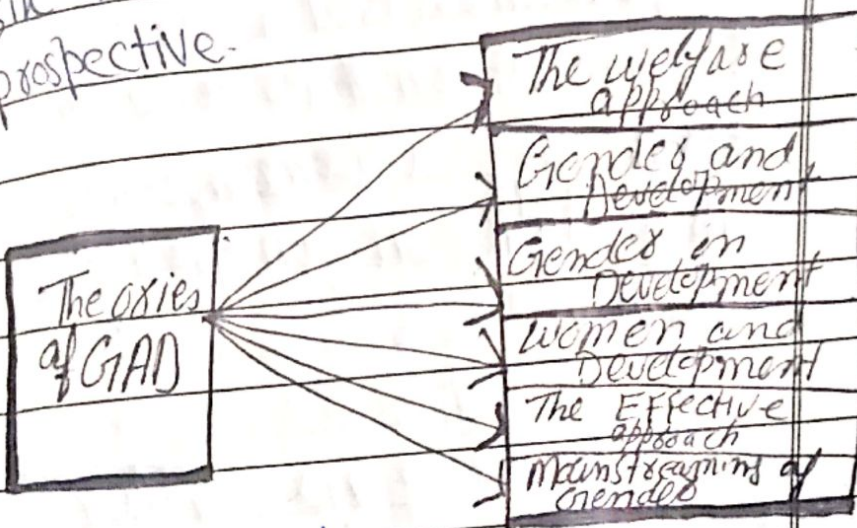 prospective.
Theories
of GAD
The welfare
approach
Gender and
Development
Gender in
Development
Women and
Development
The Effective
approach
Mainstreaming of
Gender